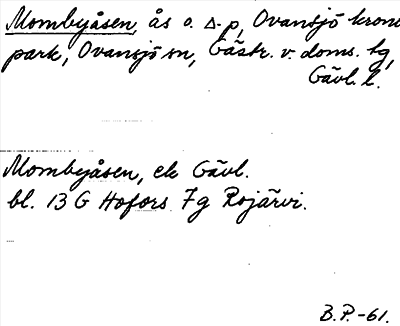 Mombyåsen, ås o. ∆.p, Ovansjö krono
park, Ovansjö sn, Gästr. v. doms. tg,
Gävl. l.
Mombyåsen, ek Gävl.
bl. 13 G Hofors 7g Rojärvi.
B.P.-61.